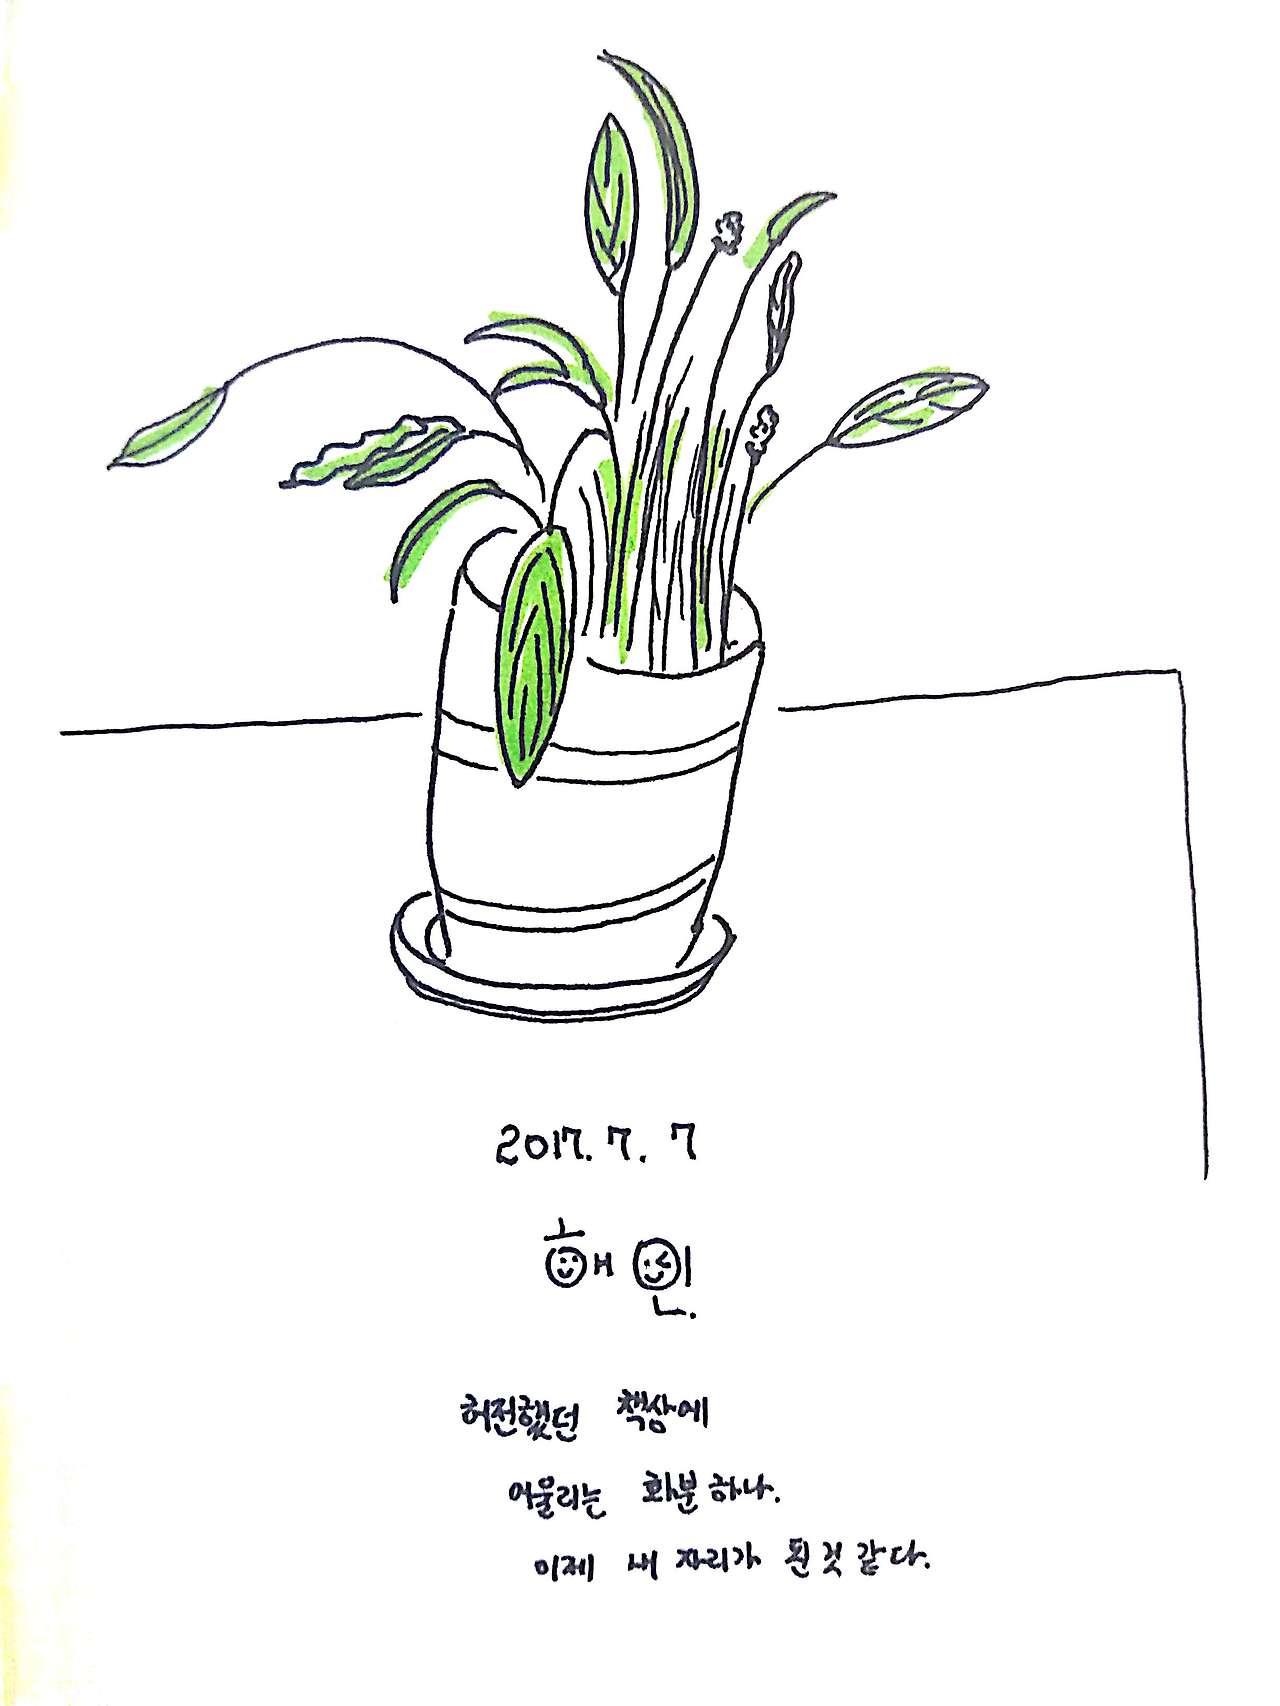 2017. 7. 7
해인.
허전했던 책상에
어울리는 화분 하나.
이제 내 자리가 된 것 같다.